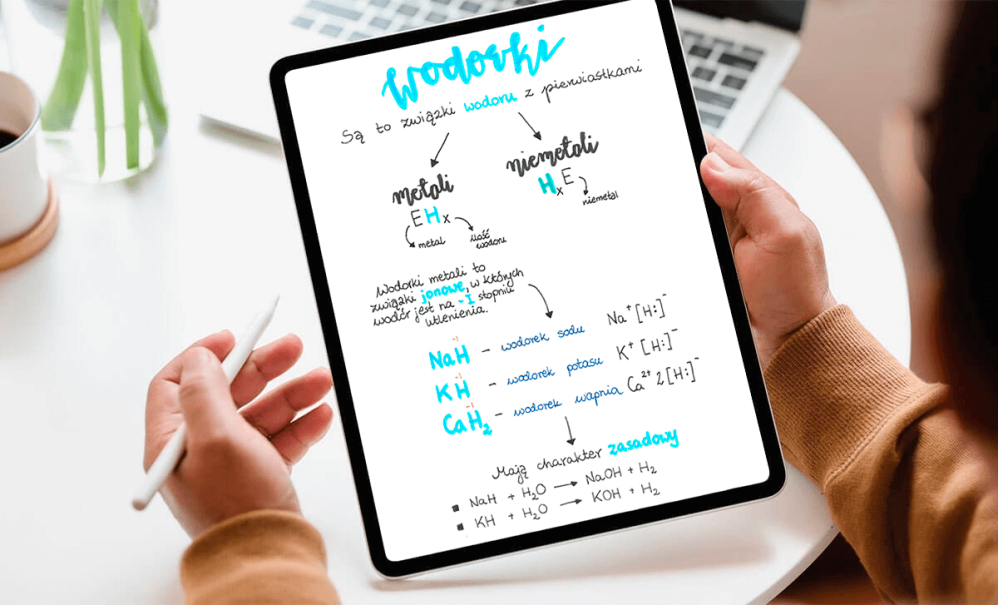 Wodorki
Są to związki wodoru z pierwiastkami
metali
niemetali
EHₓ
HₓE
metal
ilość
wodoru
niemetal
Wodorki metali to
związki jonowe, w których
wodór jest na -I stopniu
utlenienia.
-I
NaH – wodorek sodu Na⁺[H:]⁻
-I
KH – wodorek potasu K⁺[H:]⁻
-I
CaH₂ – wodorek wapnia Ca²⁺ 2[H:]⁻
Mają charakter zasadowy
▪ NaH + H₂O → NaOH + H₂
▪ KH + H₂O → KOH + H₂